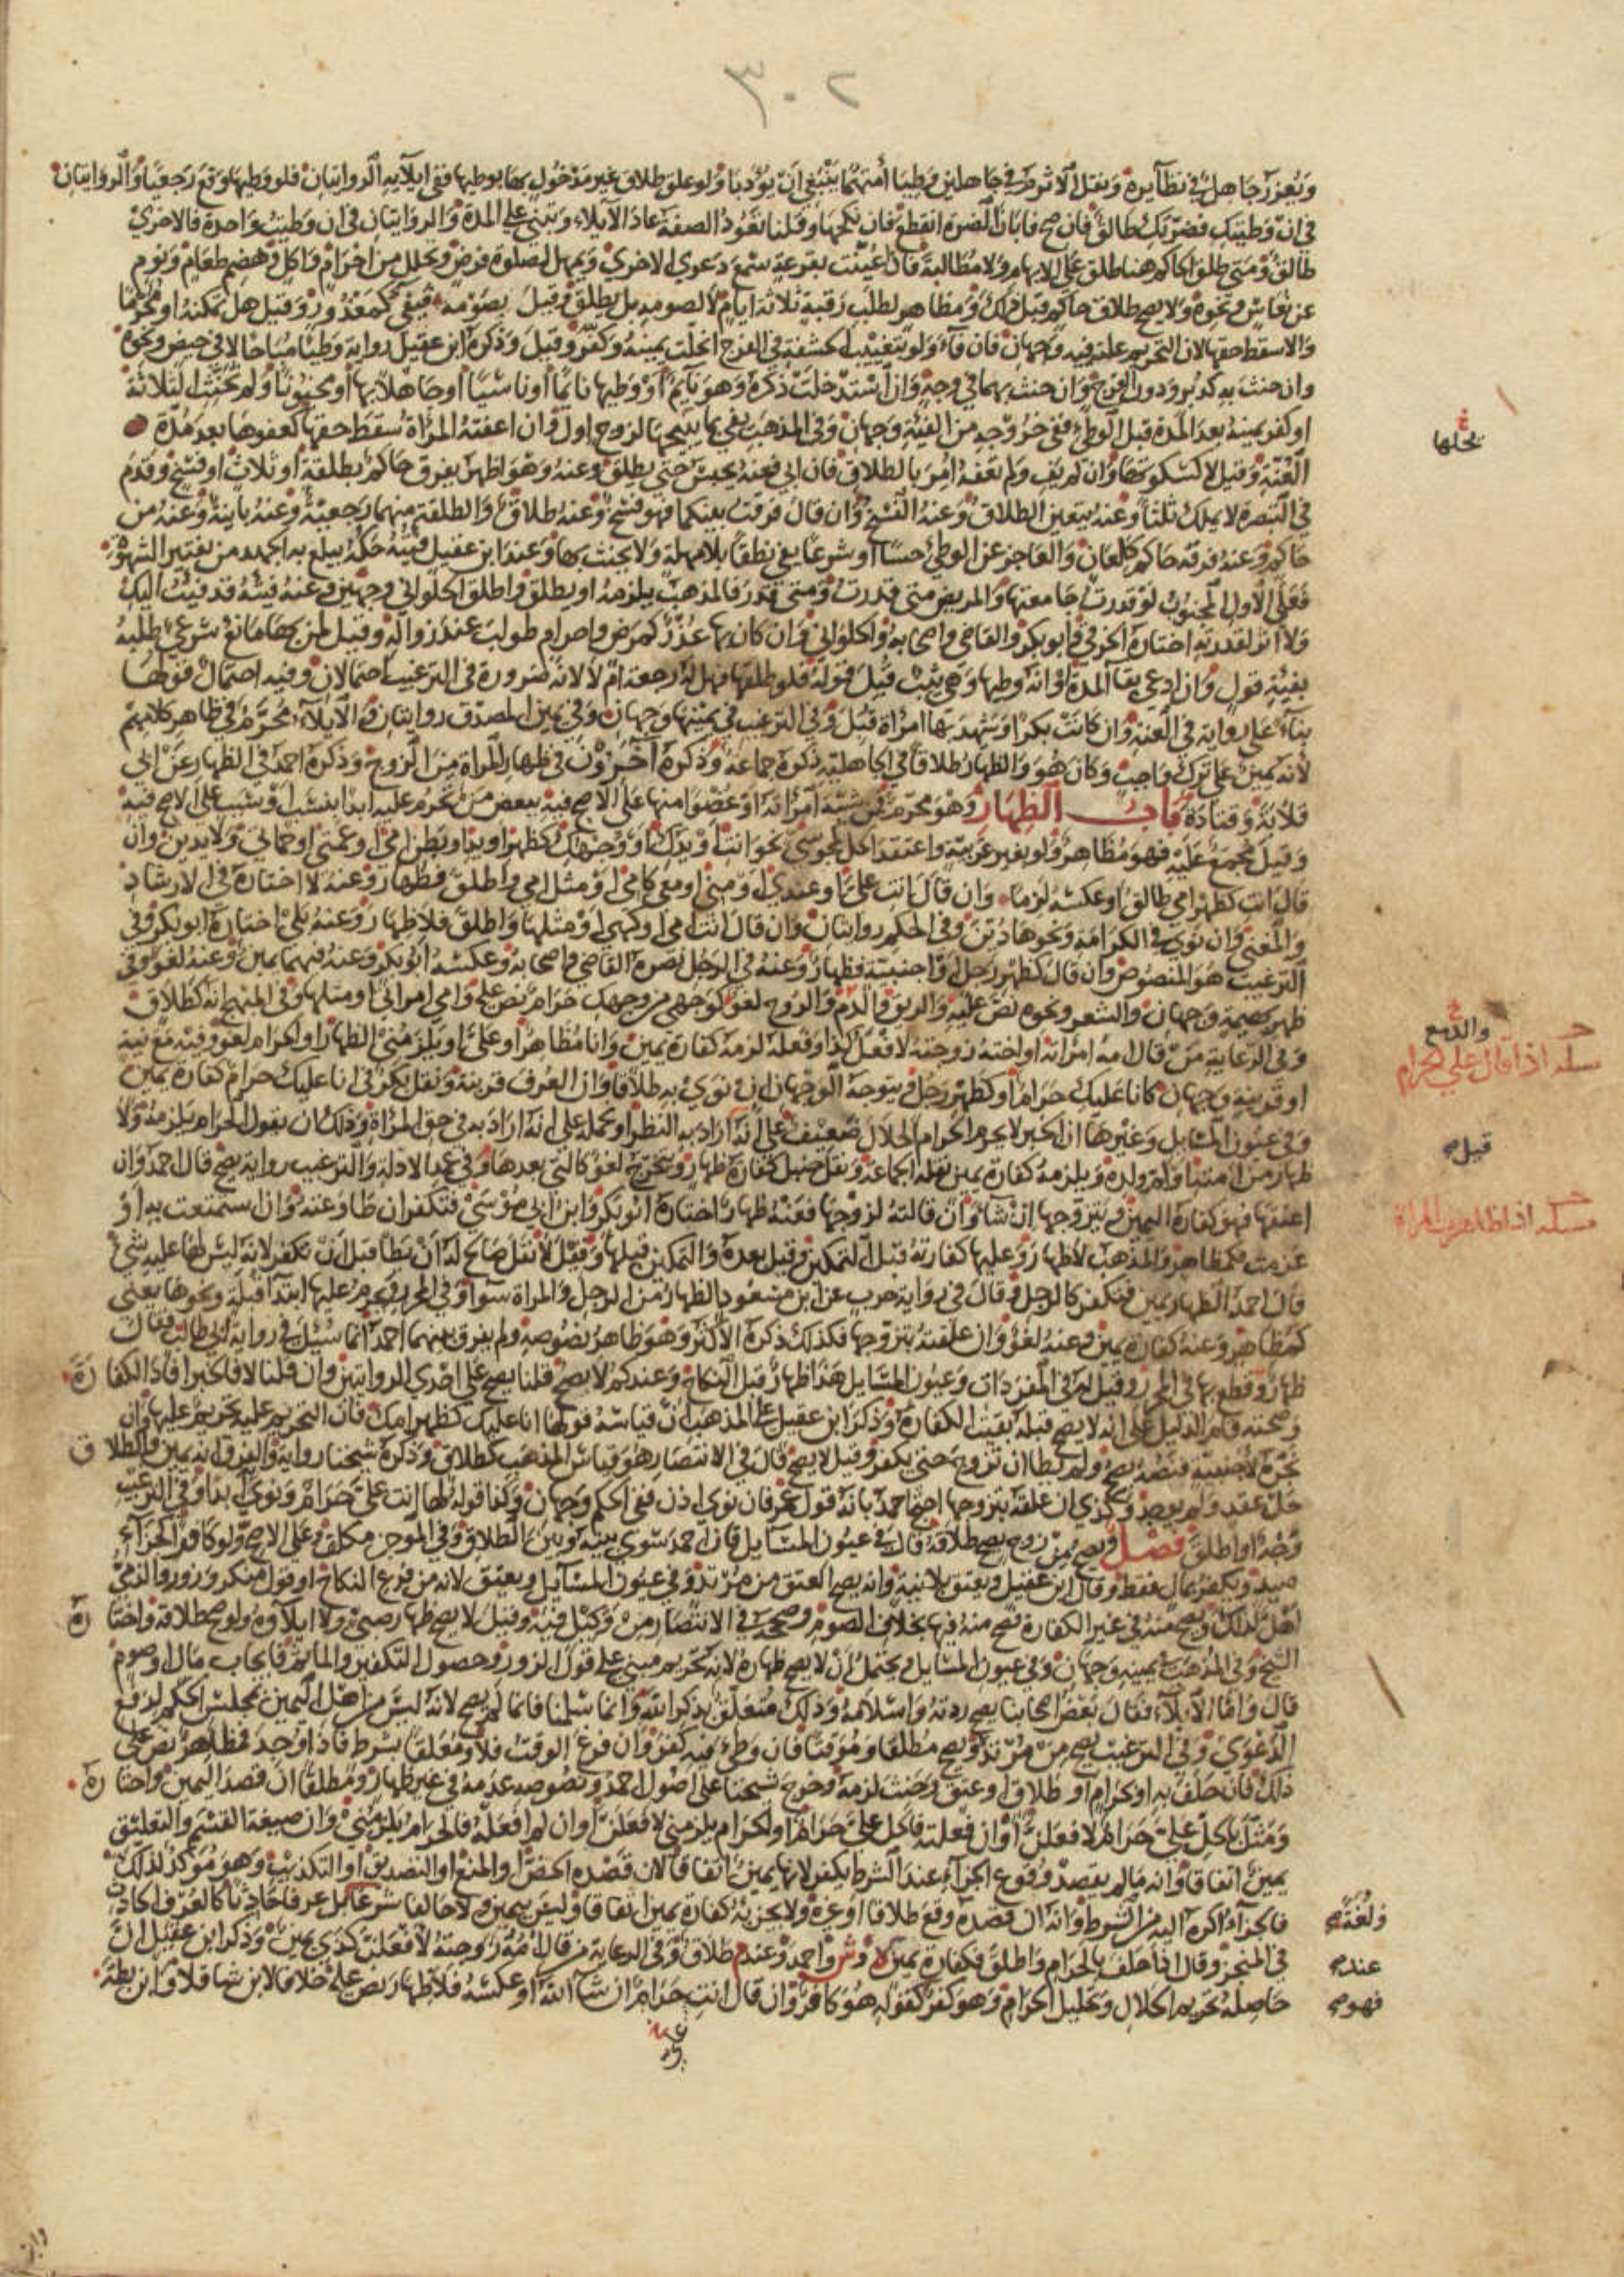 ٣٠٢
ويعزر جاهل في نظايره ونقل الاثرم في جاهلين وطيا امتهما ينبغي ان يؤدبا ولو علق طلاق غير مدخول بها بوطيها ففي ايلآيه الروايتان فلو وطيها وقع رجعيا والروايتان
في ان وطيتك فضرتك طالق فان صح فابان الضرة انقطع فان نكحها وقلنا تعود الصفة عاد الايلاء وتبنى على المدة والروايتان في ان وطيت واحدة فالاخرى
طالق ومتى طلق الحاكم هنا طلق على الابهام ولا مطالبة فاذا عينت بقرعة سمع دعوى الاخرى ويمهل لصلوة فرض وتحلل من احرام واكل وهضم طعام ونوم
عن نعاس ونحوه ولا يصح طلاق حاكم قبل ذلك ومظاهر لطلب رقبة ثلاثة ايام لا لصومه بل يطلق وقيل بصومه فيفي كمعذور وقيل هل تمكنه او تحرمها
والا سقط حقها لان التحريم عليه فيه وجهان فان فآء ولو بتغييب الحشفة في الفرج انحلت يمينه وكفر وقيل وذكره ابن عقيل رواية وطيا مباحا لا في حيض ونحوه
وان حنث به كدبر ودون الفرج وان حنث بهما في وجه وان استدخلت ذكره وهو نايم او وطيها نايما او ناسيا او جاهلا بها او مجنونا ولم نحنث الثلاثة
او كفر يمينه بعد المدة قبل الوطي ففي خروجه من الفيئة وجهان وفي المذهب يفي بما يبيحها لزوج اول وان اعفته المراة سقط حقها كعفوها بعد مدة
العنة وقيل لا كسكوتها وان لم يف ولم تعفه امر بالطلاق فان ابى فعنه يحبس حتى يطلق وعنه وهو اظهر يفرق حاكم بطلقة او ثلاث او فسخ وقدم
في التبصرة لا يملك ثلثا وعنه يتعين الطلاق وعنه الفسخ وان قال فرقت بينكما فهو فسخ وعنه طلاق والطلقة منهما رجعية وعنه باينة وعنه من
حاكم وعنه فرقة حاكم كلعان والعاجز عن الوطي حسا او شرعا يفي نطقا بلا مهلة ولا يحنث بها وعند ابن عقيل فيئته حكه يبلغ به الجهد من تفتير الشهوة
فعلى الاول المجبوب لو قدرت جامعتها والمريض متى قدرت ومتى قدر فالمذهب يلزمه او يطلق واطلق الحلواني وجهين وعنه فيئته قد فيئت اليك
ولا اثر لقدرته اختاره الخرقي وابو بكر والقاضي واصحابه والحلواني وان كان بها عذر كمرض واحرام طولب عند زواله وقيل لمن بها مانع شرعي طلبه
بفيئة قول وان ادعى بقا المدة او انه وطيها وهي ثيب قبل قوله فلو طلقها فهل له رجعة ام لا لانه ضرورة في الترغيب احتمالان وفيه احتمال قولها
بناء على رواية في العنة وان كانت بكرا وشهدت بها امراة قبل وفي الترغيب في يمينها وجهان وفي يمين المصدق روايتان والايلآء محرم في ظاهر كلامهم
لانه يمين على ترك واجب وكان هو والظهار طلاقا في الجاهلية ذكره جماعة وذكره اخرون في ظهار المراة من الزوج وذكره احمد في الظهار عن ابي
قلابة وقتادة باب الظهار وهو محرم فمن شبه امراته او عضوا منها على الاصح فيه ببعض من تحرم عليه ابدا بنسب او سبب على الاصح فيه
وقيل مجمع عليه فهو مظاهر ولو بغير عربية واعتقد الحل مجوسي نحو انت او يدك او وجهك كظهر او يد او بطن امي او عمتي او حماتي ولا يدين وان
قال انت كظهر امي طالق او عكسه لزما وان قال انت علي او عندي او مني او معي كامي او مثل امي واطلق فظهار وعنه لا اختاره في الارشاد
والمغني وان نوى في الكرامة ونحوها دين وفي الحكم روايتان وان قال انت امي او كهي او مثلها واطلق فلا ظهار وعنه بلى اختاره ابو بكر وفي
الترغيب هو المنصوص وان قال كظهر رجل او اجنبية فظهار وعنه في الرجل نصره القاضي واصحابه وعكسه ابو بكر وعنه فيهما يمين وعنه لغو وفي
ظهر بهيمة وجهان والشعر ونحوه نص عليه والريق والدم والروح لغو كوجهي من وجهك حرام نص عليه وامي امراتي او مثلها وفي المبهج انه كطلاق
وفي الرعاية من قال لامراته او اخته زوجته لا فعل كذا وفعله لزمه كفارة يمين وانا مظاهر او علي او يلزمني الظهار او الحرام لغو وفيه مع نية
او قرينة وجهان كانا عليك حرام او كظهر رجل ويتوجه الوجهان ان نوى به طلاقا وان العرف قرينة ونقل بكر في انا عليك حرام كفارة يمين
وفي عيون المسايل وغيرها ان الخبر لا يحرم الحرام الحلال ضعيف على انه اراد به النظر او نحمله على انه اراد به في حق المراة وذلك ان بقول الحرام يلزمه ولا
ظهار من امته او ام ولده ويلزمه كفارة يمين نقله الجماعة ونقل حنبل كفارة ظهار ويتخرج لغو كالتي بعدها وفي عمد الادلة والترغيب رواية يصح قال احمد وان
اعتقها فهو كفارة اليمين ويتزوجها ان شا وان قالته لزوجها فعنه ظهار اختاره ابو بكر وابن ابي موسى فتكفر ان طاوعته وان استمتعت به او
عزمت فكمظاهر والمذهب لا ظهار وعليها كفارته قبل التمكين وقيل بعده والتمكين قبلها وقيل لا نقل صالح له ان يطا قبل ان تكفر لانه ليس لها عليه شي
قال احمد الظهار يمين فتكفر كالرجل وقال في رواية حرب عن ابن مسعود الظهار من الرجل والمراة سوآ وفي المحرر يحرم عليها ابتدا قبلة ونحوها يعني
كمظاهر وعنه كفارة يمين وعنه لغو وان علقته بتزوجها فكذلك ذكره الاكثر وهو ظاهر نصوصه ولم يفرق بينهما احمد انما سئل في رواية ابي طالب فقال
ظهار وقطع بها في المحرر وقيل له في المفردات وعيون المسايل هذا ظهار قبل النكاح وعندكم لا يصح قلنا يصح على احدى الروايتين وان قلنا لا فالخبر افاد الكفارة
وصحته وقام الدليل على انه لا يصح قبله بقيت الكفارة وذكر ابن عقيل على المذهب ان قياسه قولها انا عليك كظهر امك فان التحريم عليه تحريم عليها وان
نجزه لاجنبية فنصه يصح ولم يطا ان تزوج حتى يكفر وقيل لا يصح قال في الانتصار هو قياس المذهب كطلاق وذكره شيخنا رواية والفرق انه يمين والطلاق
حل عقد ولم يوجد وكذي ان علقه بتزوجها احتج احمد بانه قول عمر فان نوى اذن ففي الحكم وجهان وكذا قوله لها انت علي حرام ونوى ابدا وفي الترغيب
وجه او اطلق فصل ويصح من زوج يصح طلاقه قال في عيون المسايل فان احمد سوى بينه وبين الطلاق وفي الموجز مكلف وعلى الاصح ولو كافر الجزاء
صيد ويكفر بمال فقط وقال ابن عقيل ويعتق بلا نية وانه يصح العتق من مرتد وفي عيون المسايل ويعتق لانه من فرع النكاح او قول منكر وزور والذمي
اهل لذلك ويصح منه في غير الكفارة فصح منه فيها بخلاف الصوم وصححه في الانتصار من وكيل فيه وقيل لا يصح ظهار صبي ولا ايلاؤه ولو صح طلاقه واختاره
الشيخ وفي المذهب يمينه وجهان وفي عيون المسايل ويحتمل ان لا يصح ظهاره لانه تحريم مبني على قول الزور وحصول التكفير والماثم وايجاب مال او صوم
قال واما الايلاء فقال بعض اصحابنا يصح ردته واسلامه وذلك متعلق بذكر الله وانما سلمنا فانما لم يصح لانه ليس من اهل اليمين بمجلس الحكم لرفع
الدعوى وفي الترغيب يصح من مرتد ويصح مطلقا ومؤقتا فان وطي فيه كفر وان فرغ الوقت فلا ومعلقا بشرط فاذا وجد فمظاهر نص على
ذلك فان حلف به او بحرام او طلاق او عتق وحنث لزمه وخرج شيخنا على اصول احمد ونصوصه عدمه في غير ظهار ومطلقا ان قصد اليمين واختاره
ومثل بالحل علي حرام لا فعلن او ان فعلته فالحل علي حرام او الحرام يلزمني لا فعلن او ان لم افعله فالحرام يلزمني وان صيغة القسم والتعليق
يمين اتفاقا وانه ما لم يقصد وقوع الجزاء عند الشرط يكفر لانها يمين اتفاقا لان قصده الحض او المنع او التصديق او التكذيب وهو مؤكد لذلك
فالجزآء اكره اليه من الشرط وانه ان قصده وقع طلاقا او غيره ولا يجزئه كفارة يمين اتفاقا وليس بيمين ولا حالفا شرعا بل عرفا حادثا كالعرف الحادث
في المنجز وقال اذا حلف بالحرام واطلق فكفارة يمين وش واحمد وعند م طلاق وفي الرعاية من قال لامة زوجته لا فعلت كذي يمين وذكر ابن عقيل ان
حاصله تحريم الحلال وتحليل الحرام وهو كفر كقوله هو كافر وان قال انت حرام ان شاء الله او عكسه فلا ظهار نص عليه خلافا لابن شاقلا وابن بطة
يحلها
والدمع
مسلة اذا قال علي الحرام
قيل
مسلة اذا ظاهرت المراة
عند
فهو